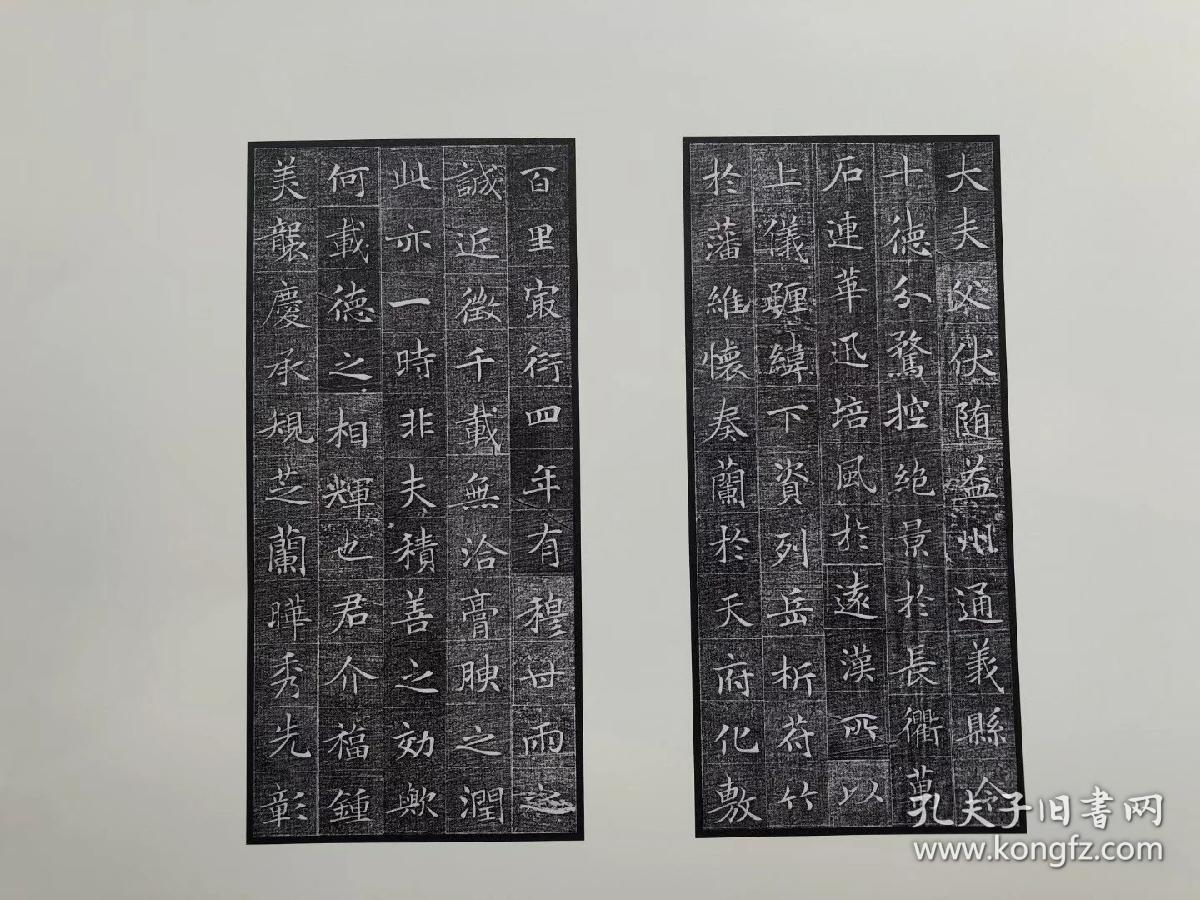 大夫父伏随益州通義縣令
十德分騖控絶景於長衢萬
石連華迅培風於遠漢所以
上儀躔緯下資列岳析苻竹
於藩維懷奏蘭於天府化敷
百里㝡衍四年有穆毋雨之
誠近徵千載無洽膏腴之潤
此亦一時非夫積善之効歟
何載德之相輝也君介福鍾
美襲慶承規芝蘭曄秀先彰
孔夫子旧书网
www.kongfz.com